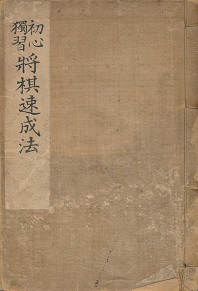 初心
獨習
將棋速成法